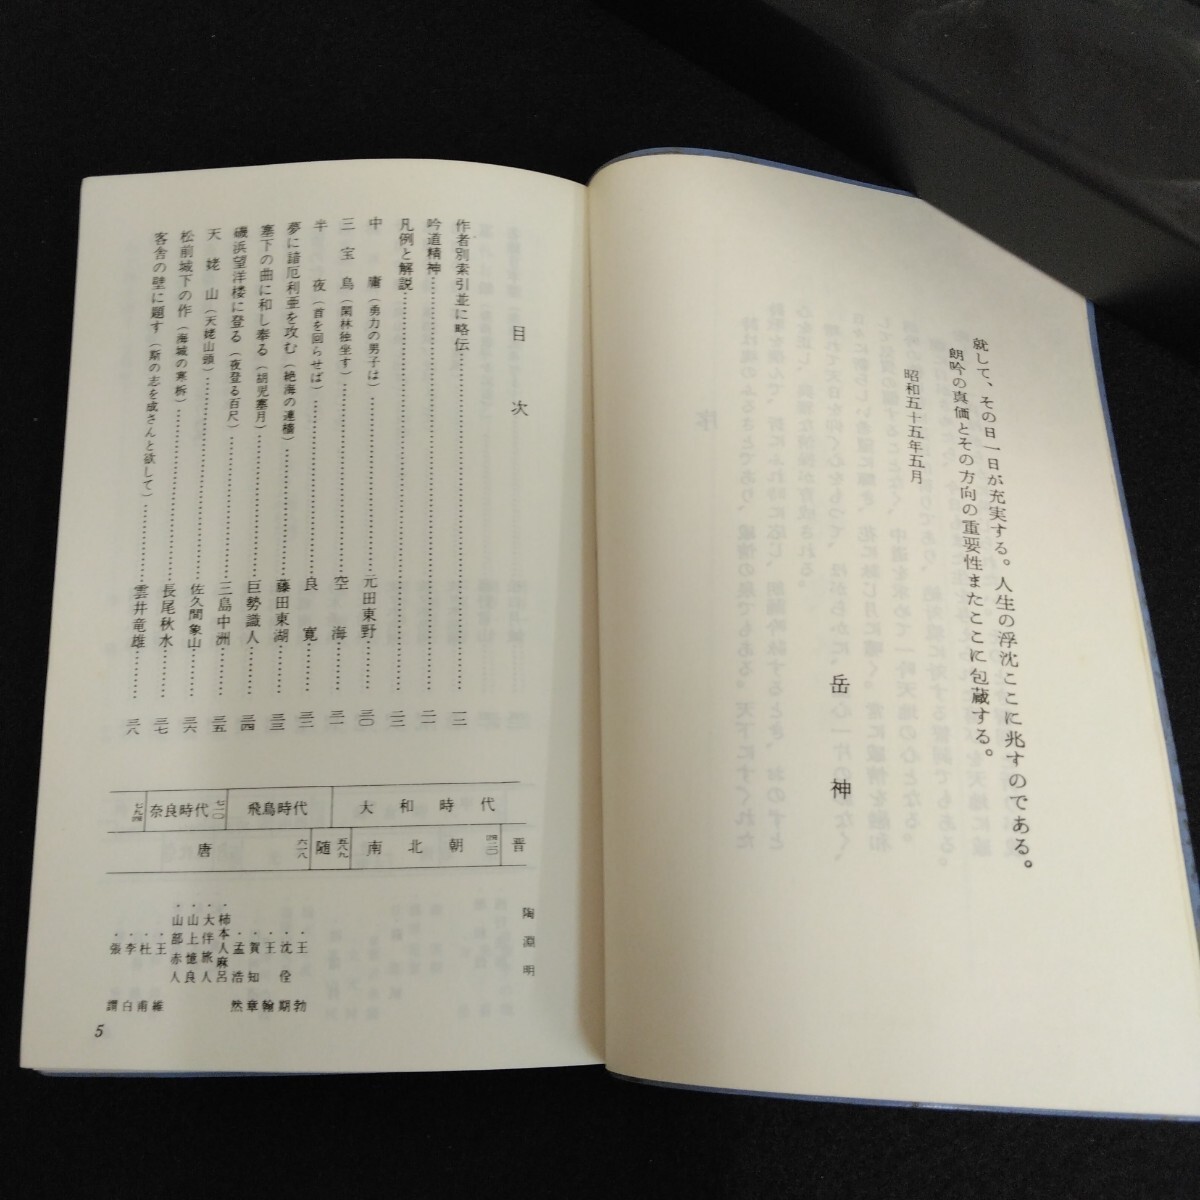 就して、その日一日が充実する。人生の浮沈ここに兆すのである。
朗吟の真価とその方向の重要性またここに包蔵する。
昭和五十五年五月
岳神
目次
作者別索引並に略伝……一二
吟道精神……二一
凡例と解説……二三
中庸（勇力の男子は）……元田東野……三〇
三宝鳥（閑林独坐す）……空海……三一
半夜（首を回らせば）……良寛……三二
夢に諳厄利亜を攻む（絶海の連檣）……藤田東湖……三三
塞下の曲に和し奉る（胡児塞月）……巨勢識人……三四
磯浜望洋楼に登る（夜登る百尺）……三島中洲……三五
天姥山（天姥山頭）……佐久間象山……三六
松前城下の作（海城の寒柝）……長尾秋水……三七
客舎の壁に題す（斯の志を成さんと欲して）……雲井竜雄……三八
大和時代
飛鳥時代
七一〇
奈良時代
七九四
晋
四二〇
南北朝
五八九
随
六一八
唐
陶淵明
・王勃
・沈佺期
・王翰
・賀知章
・孟浩然
・柿本人麻呂
・大伴旅人
・山上憶良
・山部赤人
・王維
・杜甫
・李白
・張謂
5